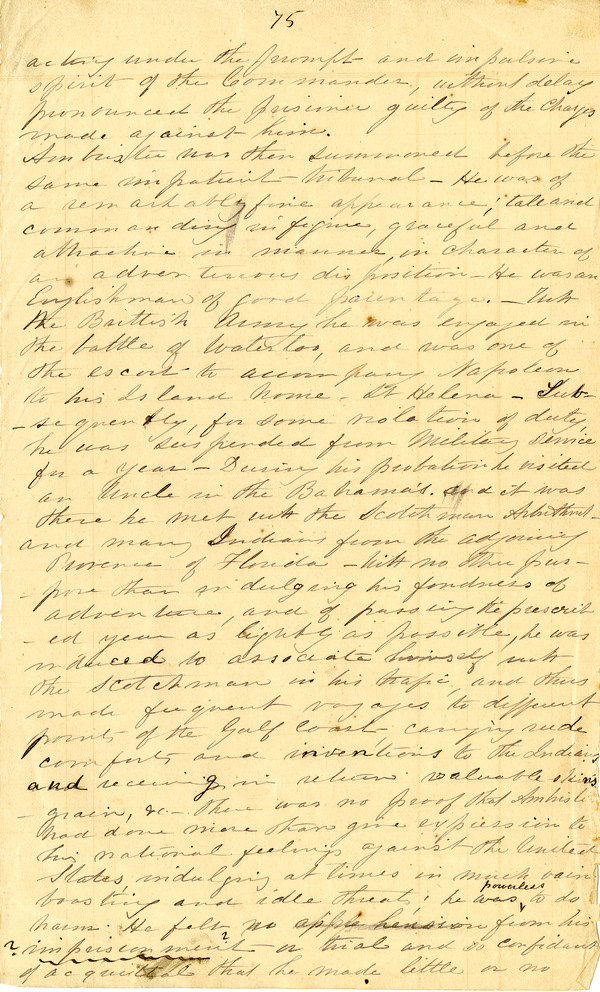 75
acting under the prompt and impulsive
spirit of the Commander, without delay
pronounced the prisoner guilty of the Charges
made against him.
Ambrister was then summoned before the
same impatient tribunal - He was of
a remarkably fine appearance; tall and
commanding in figure, graceful and
attractive in manner, in character of
an adventurous disposition - He was an
Englishman of good parentage. - With
the Brittish Army he was engaged in
the battle of Waterloo, and was one of
the escort to accompany Napoleon
to his Island home - St Helena - Sub-
-sequently, for some violation of duty,
he was suspended from Military service
for a year - During his probation he visited
an Uncle in the Bahamas. and it was
there he met with the Scotchman Arbuthnot -
and many Indians from the adjoining
Province of Florida - with no other pur-
-pose than indulging his fondness of
adventure, and of passing the prescrib
-ed year as lightly as possible, he was
induced to associate himself with
the Scotchman in his trafic, and thus
made frequent voyages to different
points of the Gulf Coast carrying rude
comforts and inventions to the Indians
and receiving in return valuable skins
- grain, &c - there was no proof that Ambriste
had done more than give expression to
his national feelings against the United
States, indulging at times in much vain
boasting and idle threats; he was powerless to do
harm. He felt no apprehension from his
? imprisonment ? or trial and so confidant
of acquittal that he made little or no